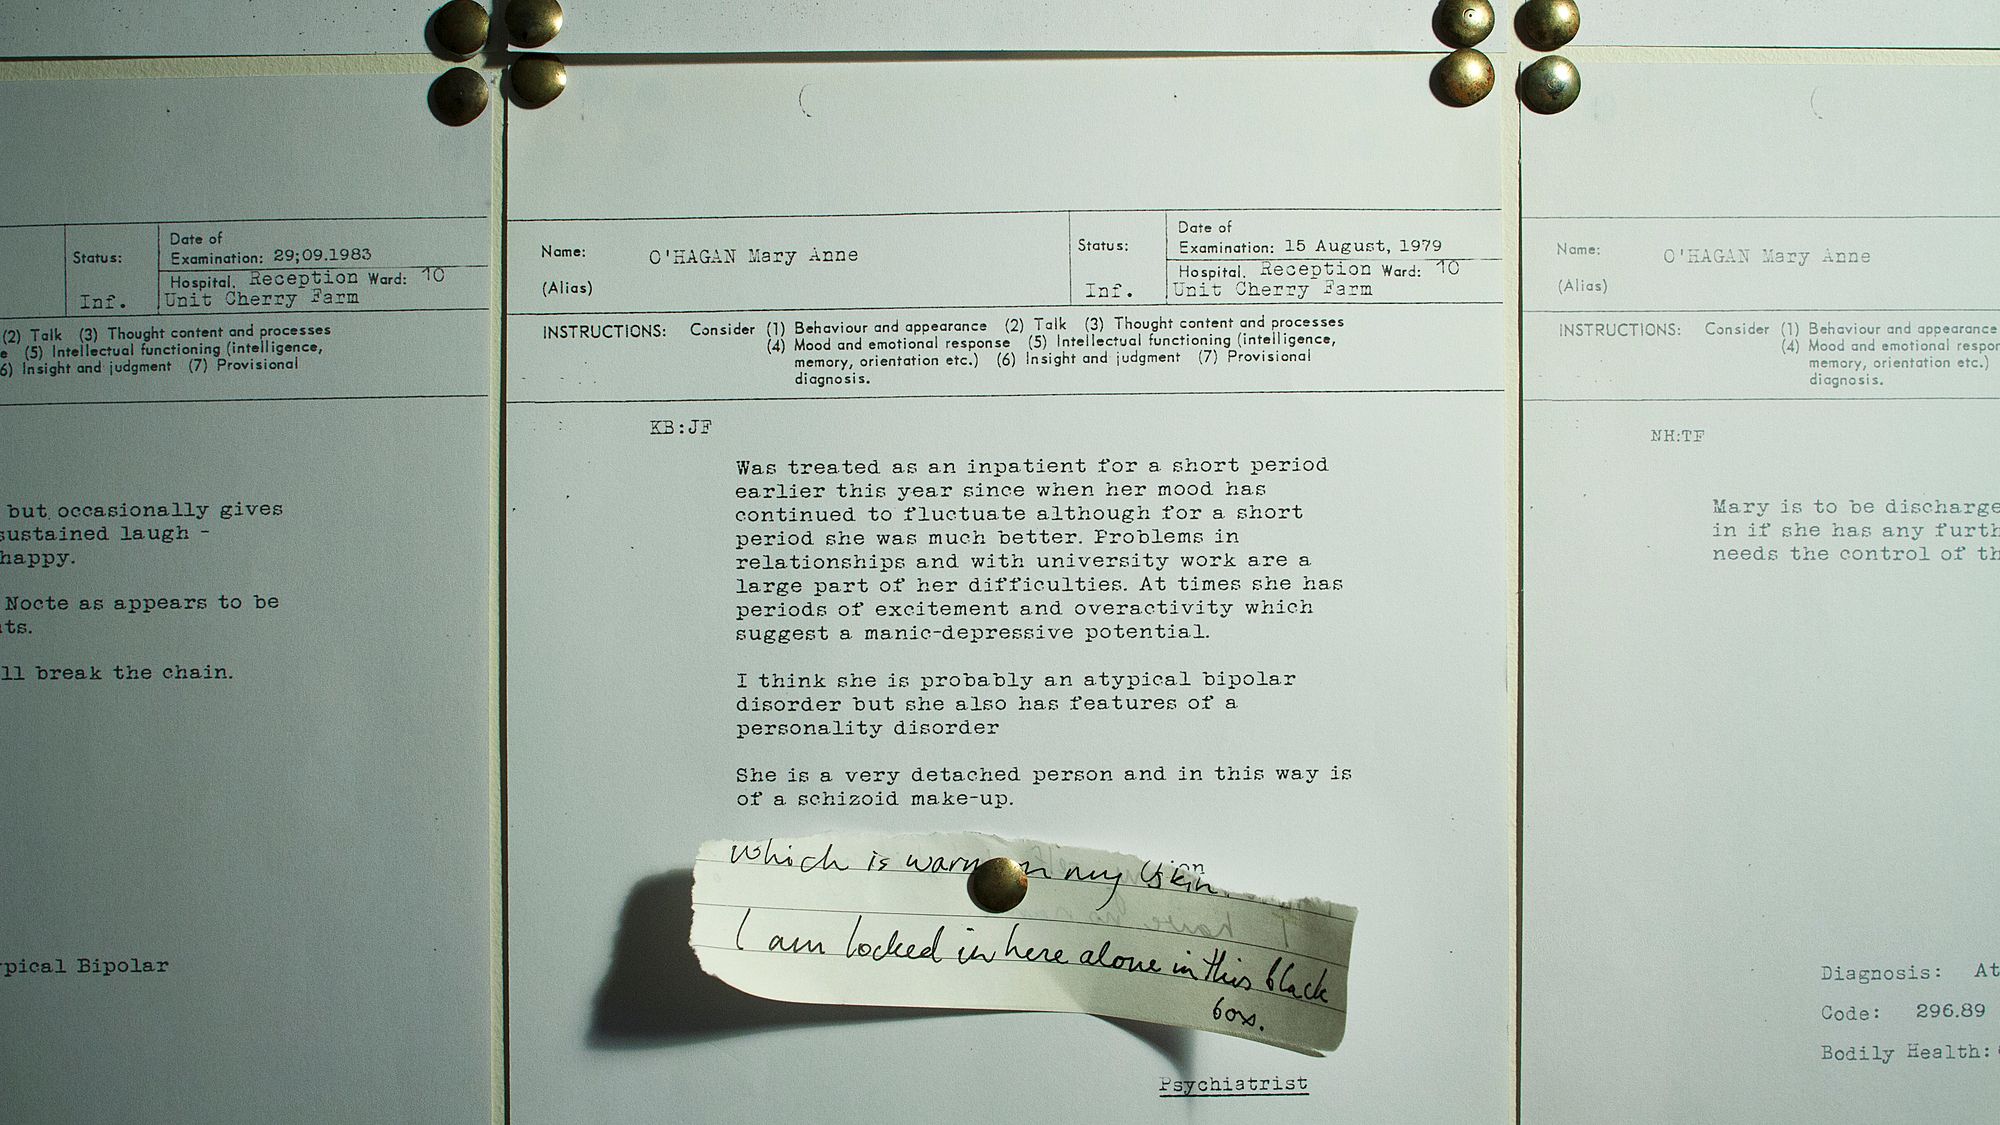 Status:
Inf.
Date of
Examination: 29;09.1983
Hospital. Reception Ward: 10
Unit Cherry Farm
(2) Talk (3) Thought content and processes
(5) Intellectual functioning (intelligence,
6) Insight and judgment (7) Provisional
but occasionally gives
sustained laugh -
happy.
Nocte as appears to be
ll break the chain.
pical Bipolar
Name: O'HAGAN Mary Anne
(Alias)
Status:
Inf.
Date of
Examination: 15 August, 1979
Hospital. Reception Ward: 10
Unit Cherry Farm
INSTRUCTIONS: Consider (1) Behaviour and appearance (2) Talk (3) Thought content and processes
(4) Mood and emotional response (5) Intellectual functioning (intelligence,
memory, orientation etc.) (6) Insight and judgment (7) Provisional
diagnosis.
KB:JF
Was treated as an inpatient for a short period
earlier this year since when her mood has
continued to fluctuate although for a short
period she was much better. Problems in
relationships and with university work are a
large part of her difficulties. At times she has
periods of excitement and overactivity which
suggest a manic-depressive potential.
I think she is probably an atypical bipolar
disorder but she also has features of a
personality disorder
She is a very detached person and in this way is
of a schizoid make-up.
which is warm on my skin.
I am locked in here alone in this black
box.
Psychiatrist
Name: O'HAGAN Mary Anne
(Alias)
INSTRUCTIONS: Consider (1) Behaviour and appearance
(4) Mood and emotional respor
memory, orientation etc.)
diagnosis.
NH:TF
Mary is to be discharge
in if she has any furth
needs the control of th
Diagnosis: At
Code: 296.89
Bodily Health: